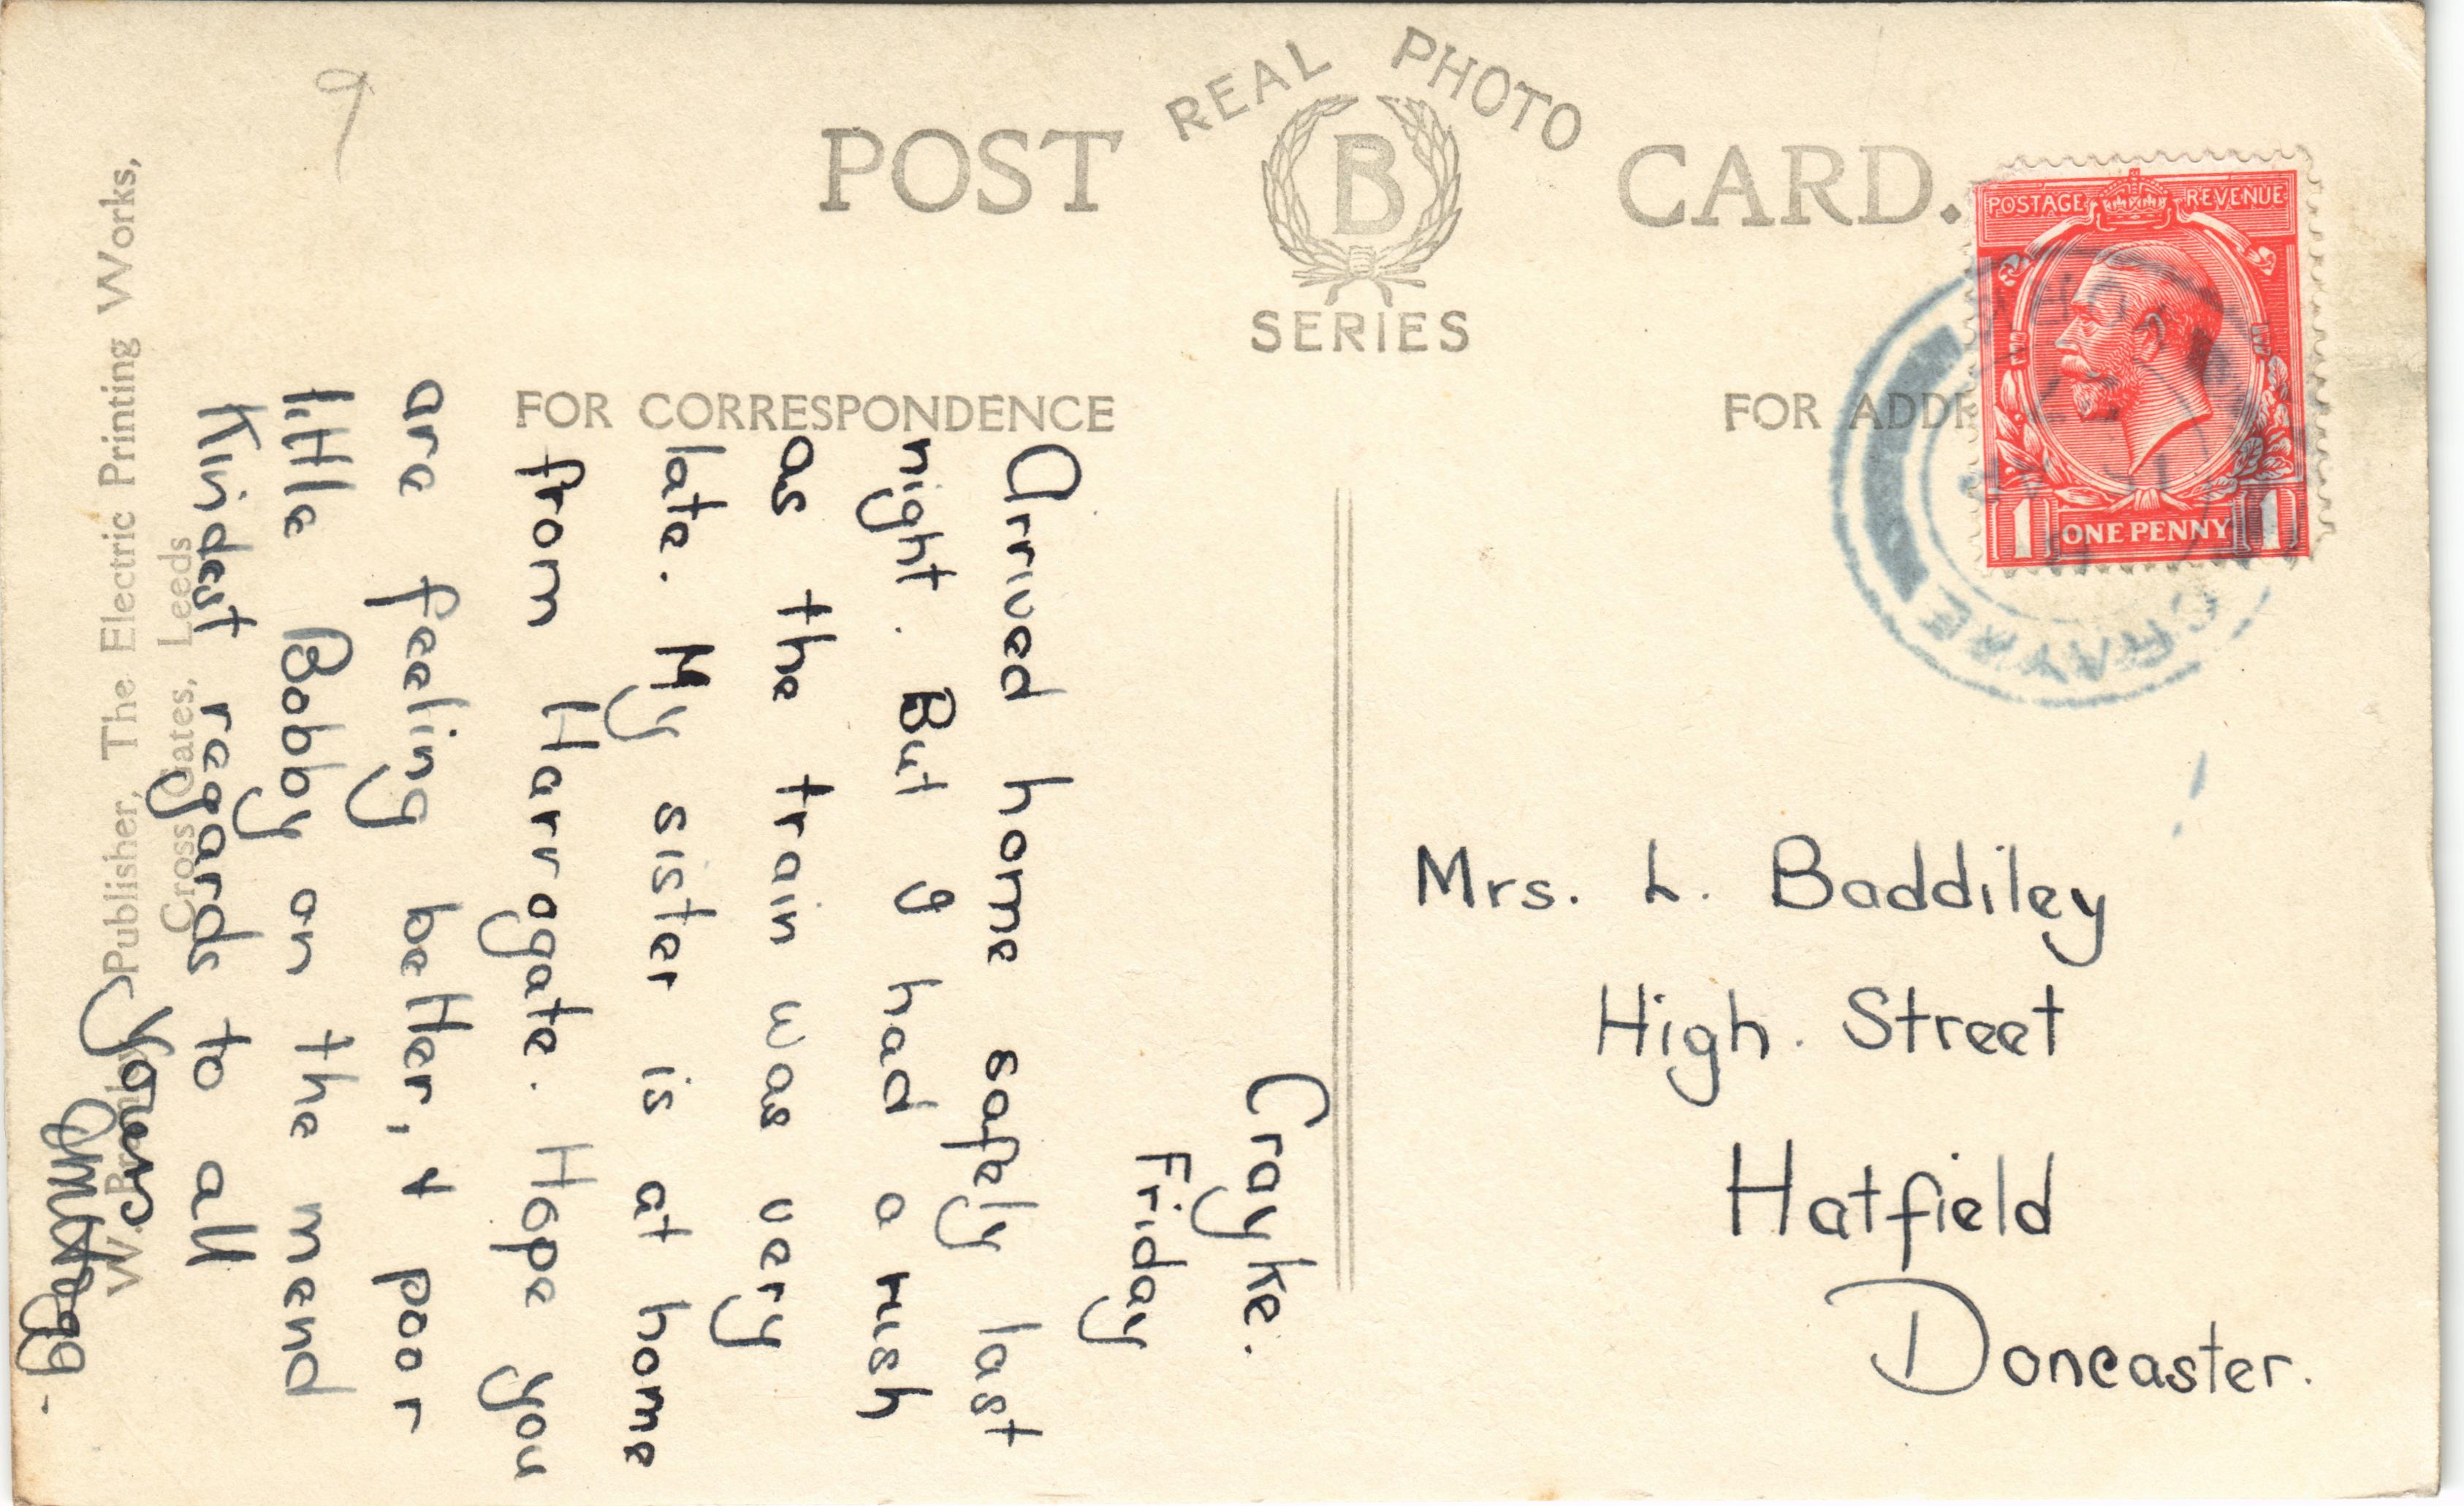 POST
REAL PHOTO
B
SERIES
CARD.
FOR CORRESPONDENCE
FOR ADDR
POSTAGE REVENUE
1 ONE PENNY 1
CRAYKE
9
Crayke.
Friday
Arrived home safely last
night. But I had a rush
as the train was very
late. My sister is at home
from Harrogate. Hope you
are feeling better, + poor
little Bobby on the mend
Kindest regards to all
Yours
Mrs. L. Baddiley
High. Street
Hatfield
Doncaster.
Publisher, The Electric Printing Works,
Cross Gates, Leeds
W.